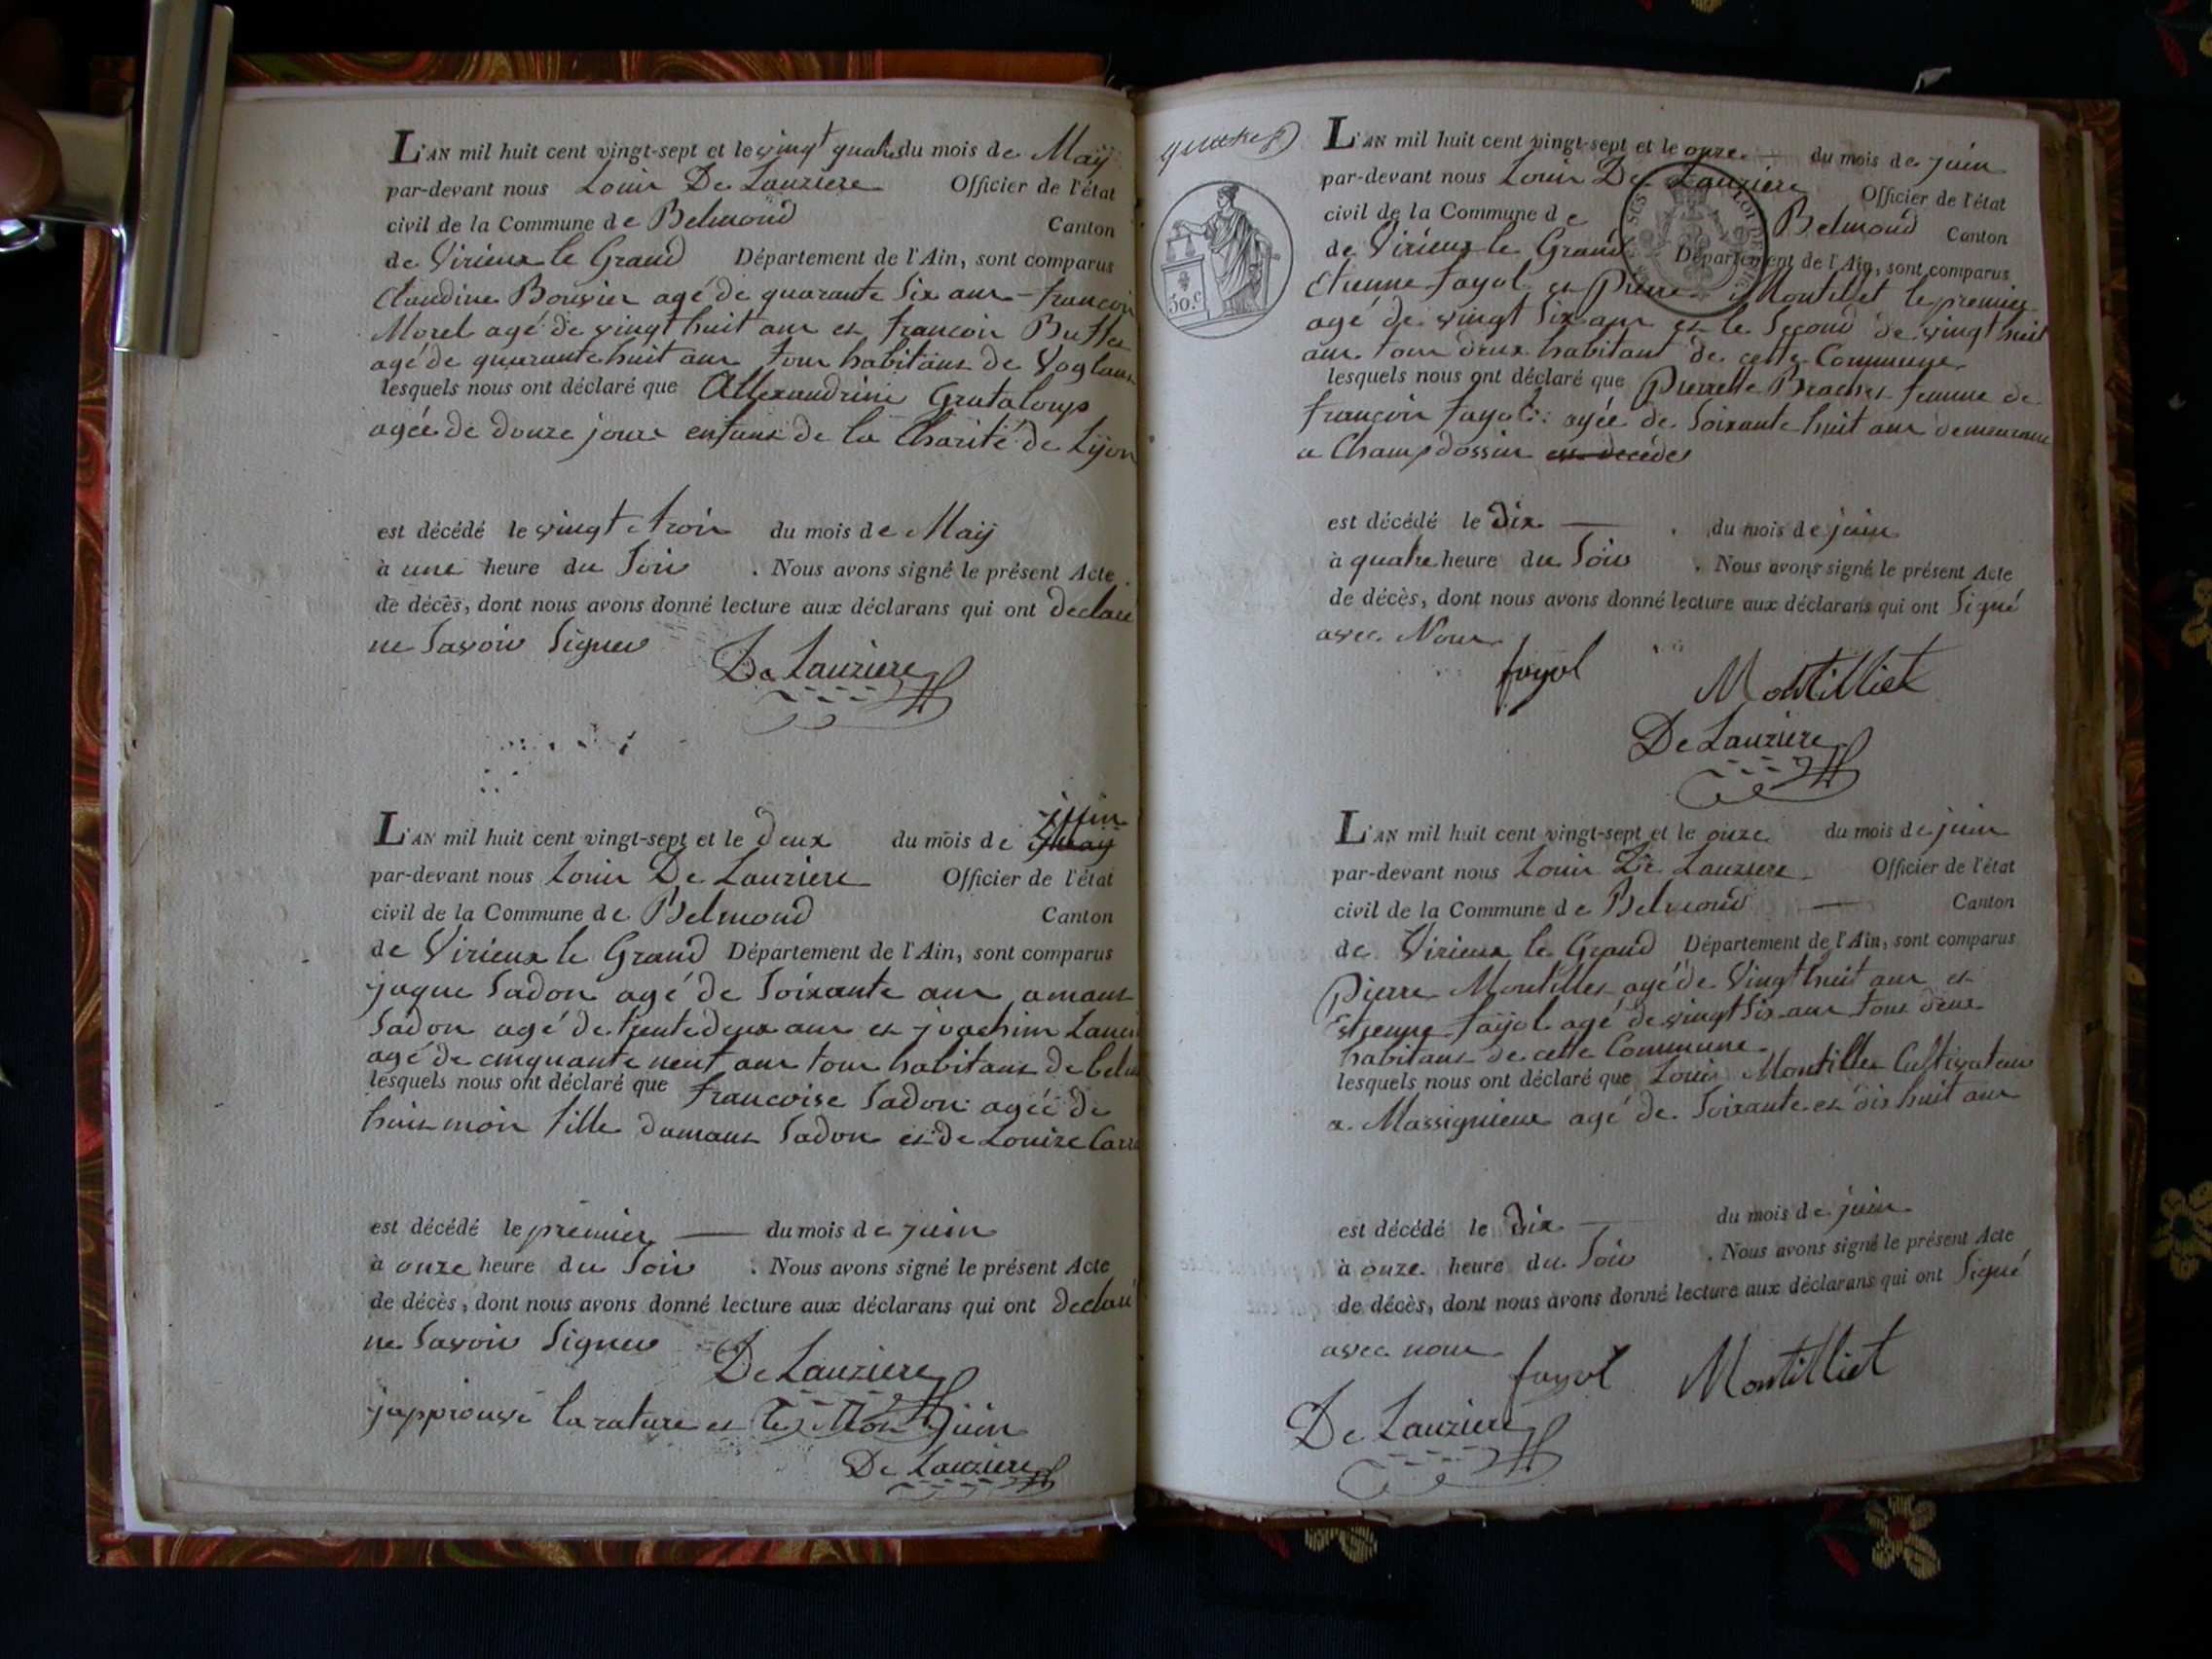 L'AN mil huit cent vingt-sept et le vingt quatre du mois de Maÿ
par-devant nous Louis De Lauziere Officier de l'état
civil de la Commune de Belmond Canton
de Virieux le Grand Département de l'Ain, sont comparus
Claudine Bouvier agé de quarante six ans - francois
Morel agé de vingt huit ans et francois Buffet
agé de quarante huit ans tous habitans de Voglans
lesquels nous ont déclaré que Allexandrine Grataloup
agée de douze jours enfant de la Charité de Lÿon
est décédé le vingt trois du mois de Maÿ
à une heure du Soir . Nous avons signé le présent Acte
de décès, dont nous avons donné lecture aux déclarans qui ont declaré
ne Savoir Signer
De Lauziere
juin
L'AN mil huit cent vingt-sept et le deux du mois de Maÿ
par-devant nous Louis De Lauziere Officier de l'état
civil de la Commune de Belmond Canton
de Virieux le Grand Département de l'Ain, sont comparus
jaque Sadon agé de Soixante ans amant
Sadon agé de trente deux ans et joachim
agé de cinquante neuf ans tous habitans de
lesquels nous ont déclaré que francoise Sadon agée de
huit mois fille damant Sadon et de Louize
est décédé le premier du mois de juin
à onze heure du Soir . Nous avons signé le présent Acte
de décès, dont nous avons donné lecture aux déclarans qui ont declaré
ne Savoir Signer
De Lauziere
japprouve la rature et le Mot juin
De Lauziere
50.c
L'AN mil huit cent vingt-sept et le onze du mois de juin
par-devant nous Louis De Lauziere Officier de l'état
civil de la Commune de Belmond Canton
de Virieux le Grand Département de l'Ain, sont comparus
Etienne fayol et Pierre Montillet le premier
agé de vingt Six ans et le Second de vingt huit
ans tous deux habitant de cette Commune
lesquels nous ont déclaré que Pierrette Brachet femme de
françois fayol agée de Soixante huit ans demeurant
a Champdossin est decedee
est décédé le Dix du mois de juin
à quatre heure du Soir . Nous avons signé le présent Acte
de décès, dont nous avons donné lecture aux déclarans qui ont Signé
avec Nous
fayol Montilliet
De Lauziere
L'AN mil huit cent vingt-sept et le onze du mois de juin
par-devant nous Louis De Lauziere Officier de l'état
civil de la Commune de Belmond Canton
de Virieux le Grand Département de l'Ain, sont comparus
Pierre Montillet agé de Vingt huit ans et
Estienne fayol agé de vingt Six ans tous deux
habitans de cette Commune
lesquels nous ont déclaré que Louis Montillet Cultivateur
a Massignieux agé de Soixante et dix huit ans
est décédé le Dix du mois de juin
à onze heure du Soir . Nous avons signé le présent Acte
de décès, dont nous avons donné lecture aux déclarans qui ont Signé
avec nous
fayol Montilliet
De Lauziere